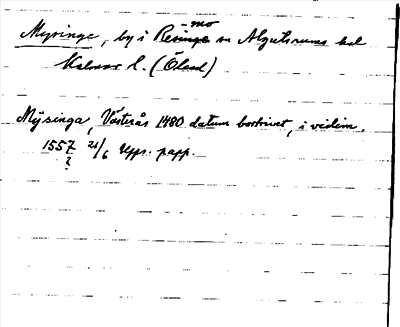 Mysinge, by i Resmo sn Algutsrums hd
Kalmar l. (Öland)
Mÿsinga, Västerås 1480 datum bortrivet, i vidim.
1557 21/6 Upps. papp.
?